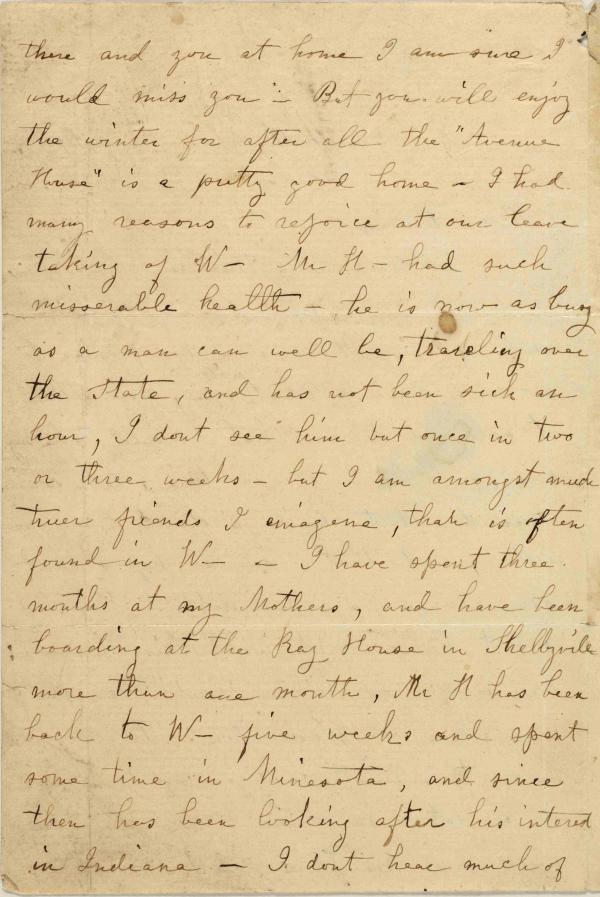 there and you at home I am sure I
would miss you - But you will enjoy
the winter for after all the "Avenue
House" is a pretty good home - I had
many reasons to rejoice at our leave
taking of W- Mr H- had such
misserable health - he is now as busy
as a man can well be, traveling over
the State, and has not been sick an
hour, I dont see him but once in two
or three weeks - but I am amongst much
truer friends I imagene, than is often
found in W- - I have spent three
months at my Mothers, and have been
boarding at the Ray House in Shelbyvile
more than one month, Mr H has been
back to W- five weeks and spent
some time in Minesota, and since
then has been looking after his interest
in Indiana - I dont hear much of